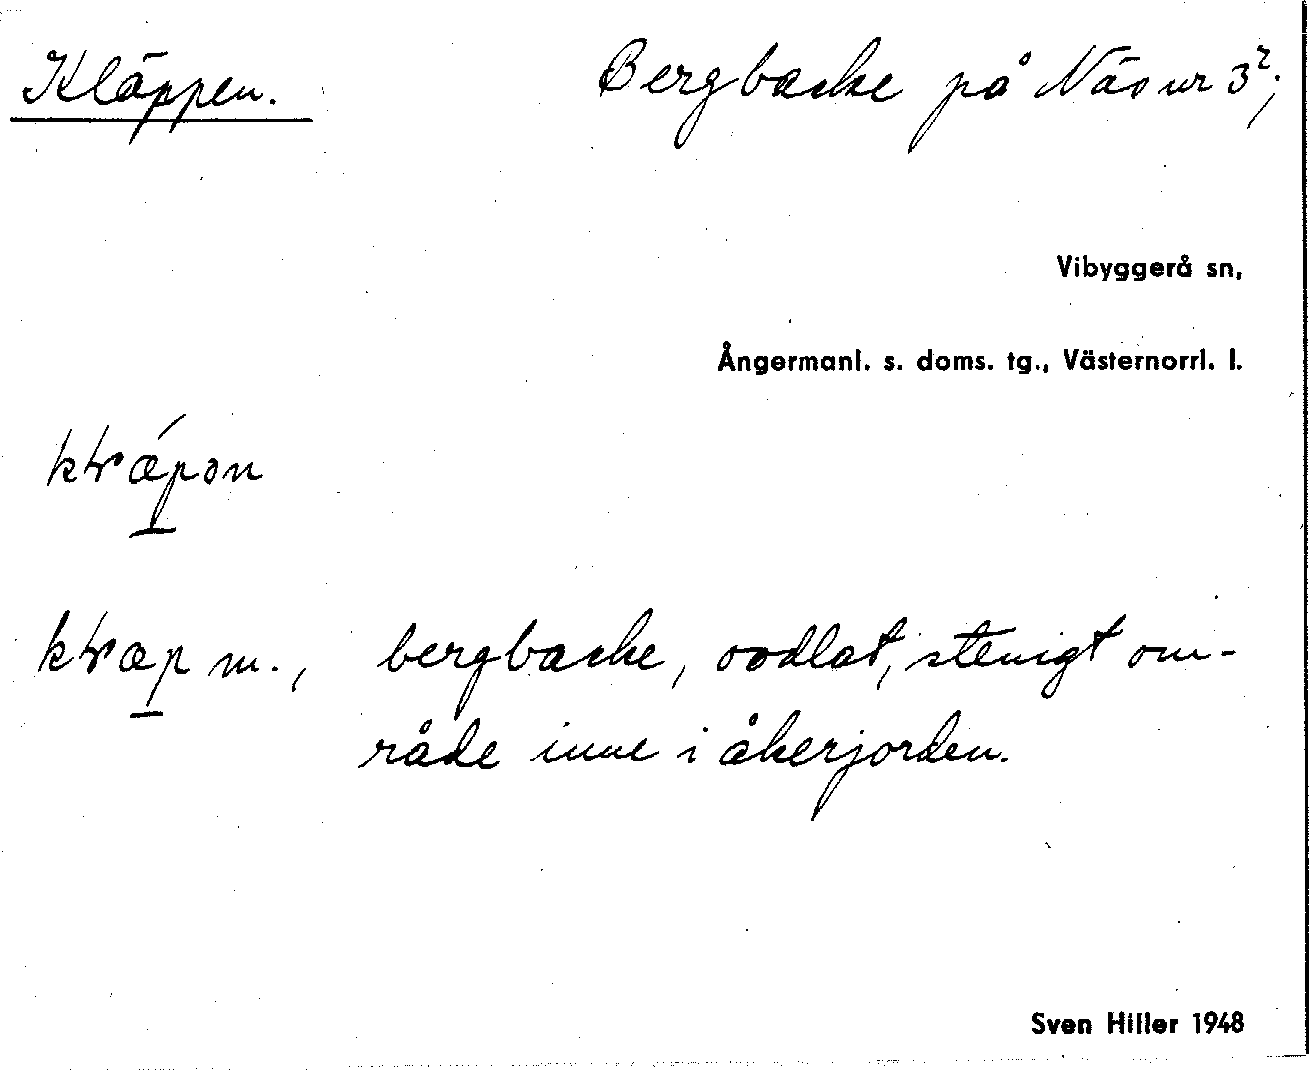 Kläppen. Bergbacke på Näsur 3²;
Vibyggerå sn,
Ångermanl. s. doms. tg., Västernorrl. l.
m., bergbacke, oodlat, stenigt om-
råde inne i åkerjorden.
Sven Hiller 1948